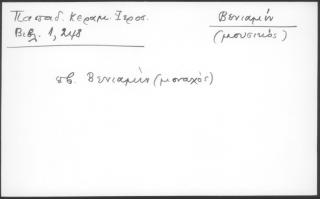 Παπαδ. Κεραμ. Ιεροσ.
Βιβλ. 1, 248
Βενιαμίν
(μουσικός)
πβ. Βενιαμίν (μοναχός)